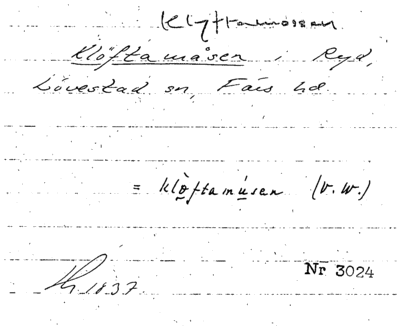 Klyftamossen
Klöftamåsen i Ryd,
Lövestad sn, Färs hd.
= klöftamusen (v. w.)
Nr 3024
1837